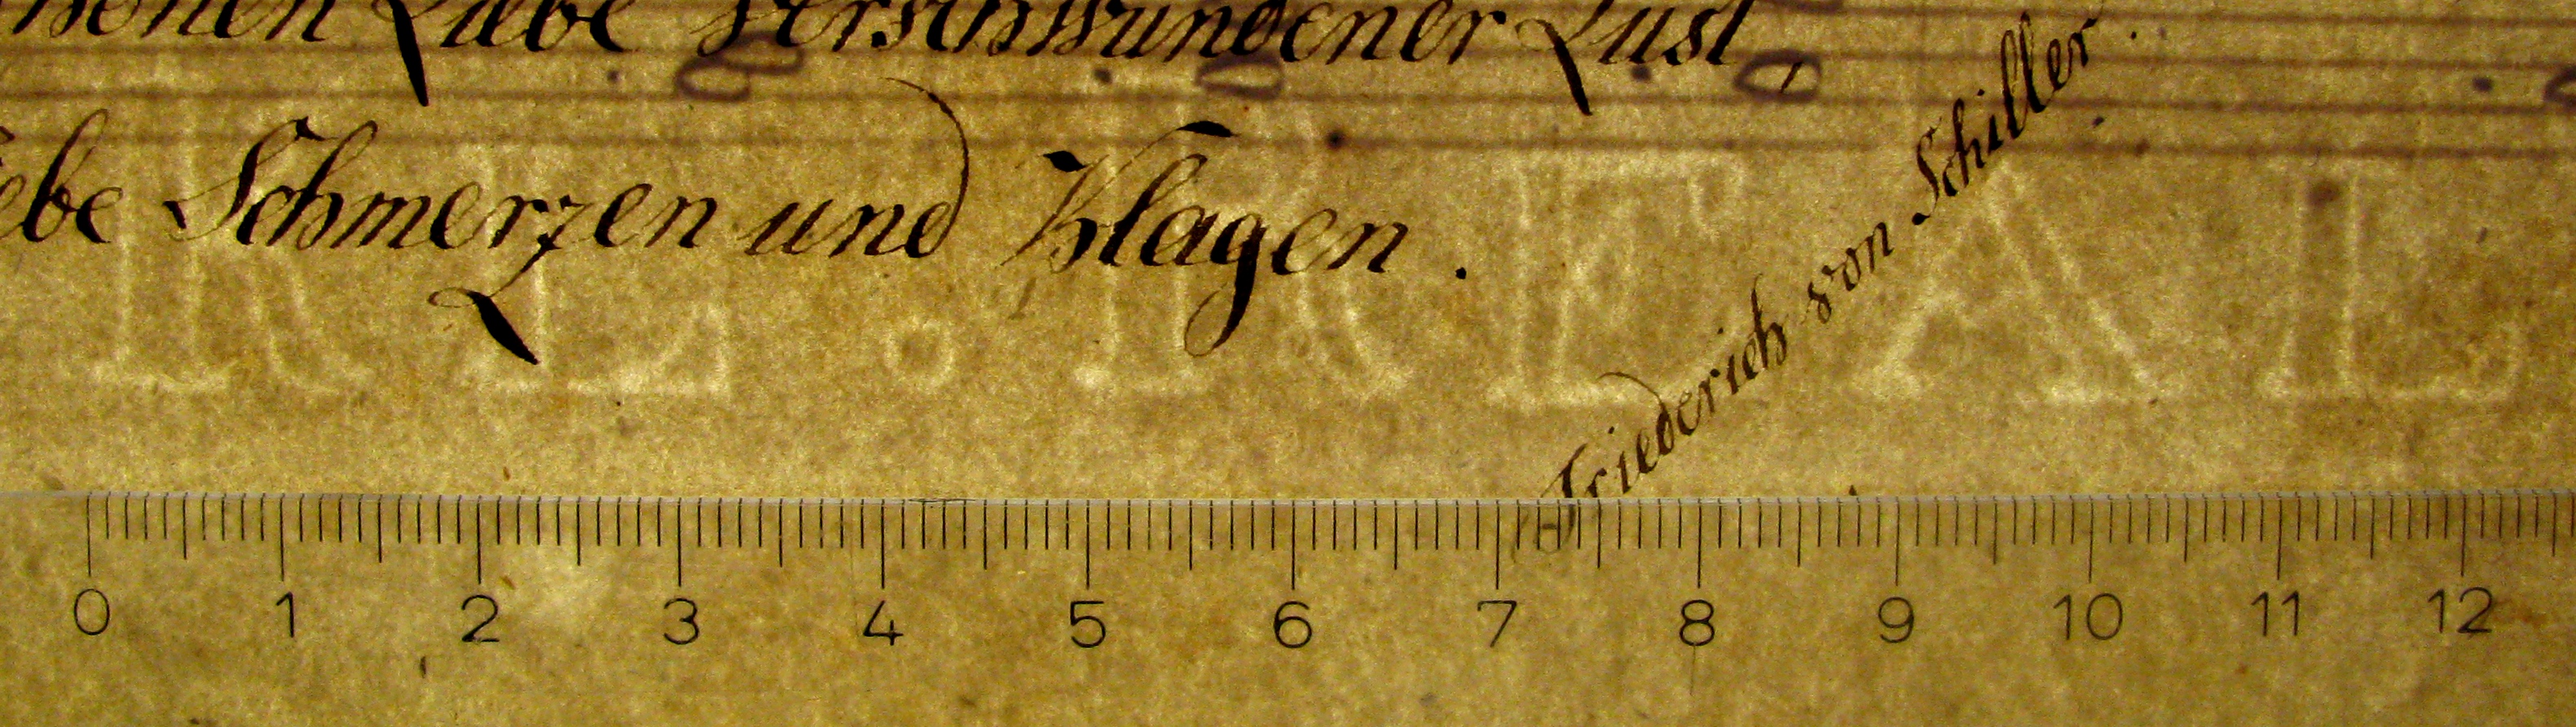 schönen Liebe verschwundener Lust,
Liebe Schmerzen und Klagen.
Friederich von Schiller.
REAL
0 1 2 3 4 5 6 7 8 9 10 11 12